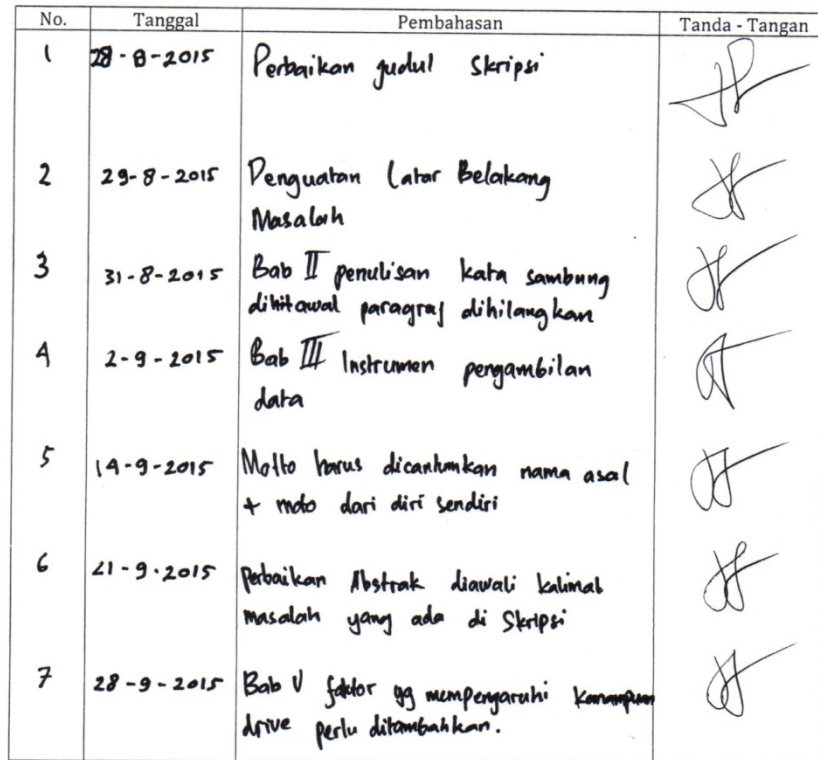 No. Tanggal Pembahasan Tanda - Tangan
1 28-8-2015 Perbaikan judul Skripsi
2 29-8-2015 Penguatan Latar Belakang
Masalah
3 31-8-2015 Bab II penulisan kata sambung
paragraf dihilangkan
4 2-9-2015 Bab III Instrumen pengambilan
data
5 14-9-2015 Motto harus dicantumkan nama asal
+ moto dari diri sendiri
6 21-9-2015 perbaikan Abstrak diawali kalimat
masalah yang ada di Skripsi
7 28-9-2015 Bab V faktor yg mempengaruhi
drive perlu ditambahkan.